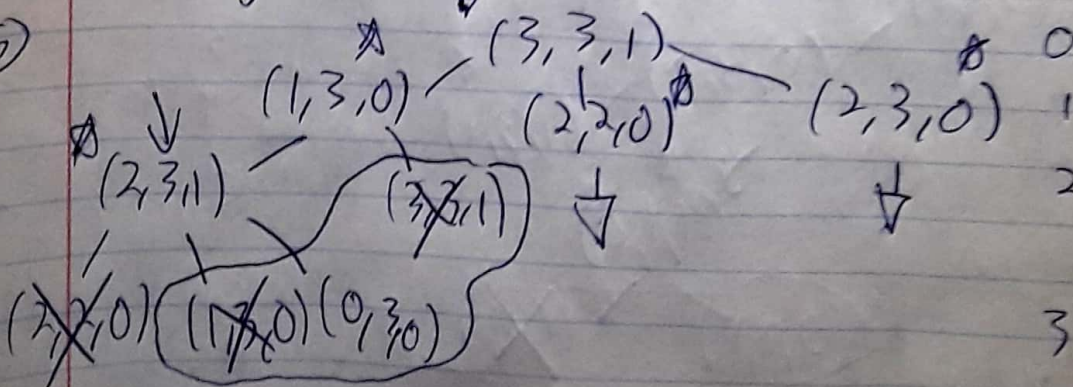 (3,3,1) 0
(1,3,0) (2,2,0) (2,3,0) 1
(2,3,1) (3,3,1) 2
(2,2,0) (1,3,0) (0,3,0) 3